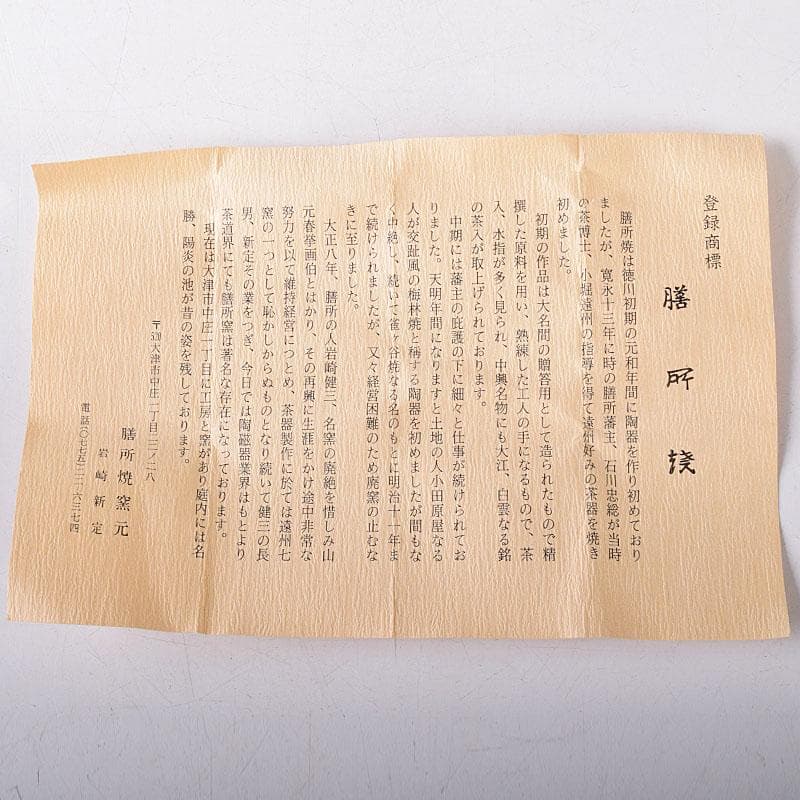 登録商標
膳所焼
膳所焼は徳川初期の元和年間に陶器を作り初めており
ましたが、寛永十三年に時の膳所藩主、石川忠総が当時
の茶博士、小堀遠州の指導を得て遠州好みの茶器を焼き
初めました。
初期の作品は大名間の贈答用として造られたもので精
撰した原料を用い、熟練した工人の手になるもので、茶
入、水指が多く見られ、中興名物にも大江、白雲なる銘
の茶入が取上げられております。
中期には藩主の庇護の下に細々と仕事が続けられてお
りました。天明年間になりますと土地の人小田原屋なる
人が交趾風の梅林焼と称する陶器を初めましたが間もな
く中絶し、続いて雀ヶ谷焼なる名のもとに明治十一年ま
で続けられましたが、又々経営困難のため廃窯の止むな
きに至りました。
大正八年、膳所の人岩崎健三、名窯の廃絶を惜しみ山
元春挙画伯とはかり、その再興に生涯をかけ途中非常な
努力を以て維持経営につとめ、茶器製作に於ては遠州七
窯の一つとして恥かしからぬものとなり続いて健三の長
男、新定その業をつぎ、今日では陶磁器業界はもとより
茶道界にても膳所窯は著名な存在になっております。
現在は大津市中庄一丁目に工房と窯があり庭内には名
勝、陽炎の池が昔の姿を残しております。
〒520大津市中庄一丁目二二ノ二八
膳所焼窯元
岩崎新定
電話(〇七七五)二三-六三七四